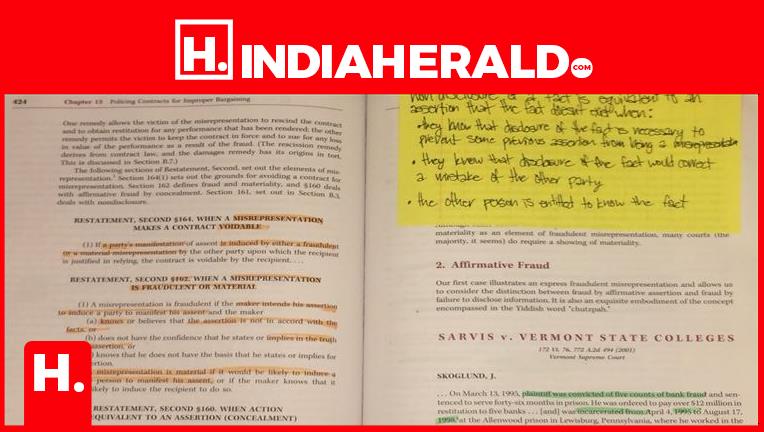 H. INDIAHERALD.COM
424 Chapter 13 Policing Contracts for Improper Bargaining
One remedy allows the victim of the misrepresentation to rescind the contract
and to obtain restitution for any performance that has been rendered; the other
remedy permits the victim to keep the contract in force and to sue for any loss
in value of the performance as a result of the fraud. (The rescission remedy
derives from contract law, and the damages remedy has its origins in tort.
This is discussed in Section B.7.)
The following sections of Restatement, Second, set out the elements of mis-
representation. Section 164(1) sets out the grounds for avoiding a contract for
misrepresentation. Section 162 defines fraud and materiality, and §160 deals
with affirmative fraud by concealment. Section 161, set out in Section B.3,
deals with nondisclosure.
RESTATEMENT, SECOND §164. WHEN A MISREPRESENTATION
MAKES A CONTRACT VOIDABLE
(1) If a party's manifestation of assent is induced by either a fraudulent
or a material misrepresentation by the other party upon which the recipient
is justified in relying, the contract is voidable by the recipient. . . .
RESTATEMENT, SECOND §162. WHEN A MISREPRESENTATION
IS FRAUDULENT OR MATERIAL
(1) A misrepresentation is fraudulent if the maker intends his assertion
to induce a party to manifest his assent and the maker
(a) knows or believes that the assertion is not in accord with the
facts, or
(b) does not have the confidence that he states or implies in the truth
assertion, or
knows that he does not have the basis that he states or implies for
ertion.
misrepresentation is material if it would be likely to induce a
person to manifest his assent, or if the maker knows that it
likely to induce the recipient to do so.
RESTATEMENT, SECOND §160. WHEN ACTION
EQUIVALENT TO AN ASSERTION (CONCEALMENT)
H.
non disclosure of a fact is equivalent to an
assertion that the fact doesn't exist when:
• they know that disclosure of the fact is necessary to
prevent some previous assertion from being a misrepresentation
• they know that disclosure of the fact would correct
a mistake of the other party
• the other person is entitled to know the fact
materiality as an element of fraudulent misrepresentation, many courts (the
majority, it seems) do require a showing of materiality.
2. Affirmative Fraud
Our first case illustrates an express fraudulent misrepresentation and allows us
to consider the distinction between fraud by affirmative assertion and fraud by
failure to disclose information. It is also an exquisite embodiment of the concept
encompassed in the Yiddish word "chutzpah."
SARVIS v. VERMONT STATE COLLEGES
172 Vt. 76, 772 A.2d 494 (2001)
Vermont Supreme Court
SKOGLUND, J.
. . . On March 13, 1995, plaintiff was convicted of five counts of bank fraud and sen-
tenced to serve forty-six months in prison. He was ordered to pay over $12 million in
restitution to five banks . . . [and] was incarcerated from April 4, 1995 to August 17,
1998, at the Allenwood prison in Lewisburg, Pennsylvania, where he worked in the